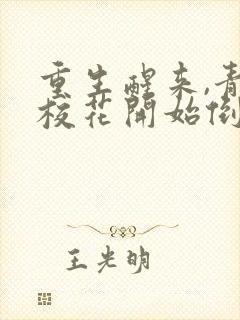 重生醒来,青
校花開始倒
王光明